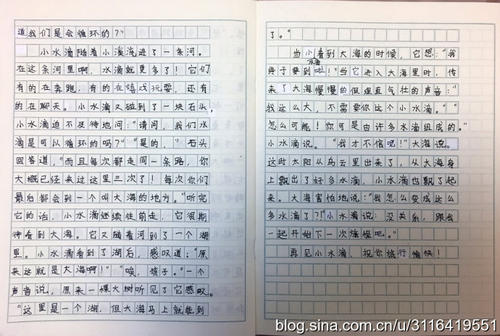 道我们是会循环的？”
小水滴随着小溪流进了一条河。
在这条河里啊，水滴就更多了！它们
有的在奔跑，有的在嬉戏玩耍，有
的在聊天。小水滴又碰到了一块石头，
小水滴迫不及待地问：“请问，我们水
滴是可以循环的吗？”“是的，”石头
回答道，“而且每次都走同一条路，你
大概已经来过这里三次了！每次你们
最后都会到一个叫大海的地方。”听完
它的话，小水滴继续往前走，它很期
待看到大海。它又随着河到了一个湖
里。小水滴看到了湖后，感叹道：“原
来这就是大海啊！”“唉，孩子。”一个
声音说，原来一棵大树听见了它感叹。
“这里是一个湖，但大海马上就能到
了。”
当小水滴看到大海的时候，它想：“我
终于要到啦！”当它进入大海里时，传
来了大海慢慢的但很粗气壮的声音：
“我这么大，不需要你这个小水滴。”“
怎么可能！你可是由许多水滴组成的。”
小水滴说。“我才不信呢！”大海说。
这时太阳从乌云里出来了，从大海身
上飘出了好多水滴，小水滴也飘了起
来。大海害怕地说：“我怎么变成这么
多水滴了？”小水滴说：没关系，跟我
一起开始下一次旅程吧。”
再见小水滴，祝你旅行愉快！
blog.sina.com.cn/u/3116419551